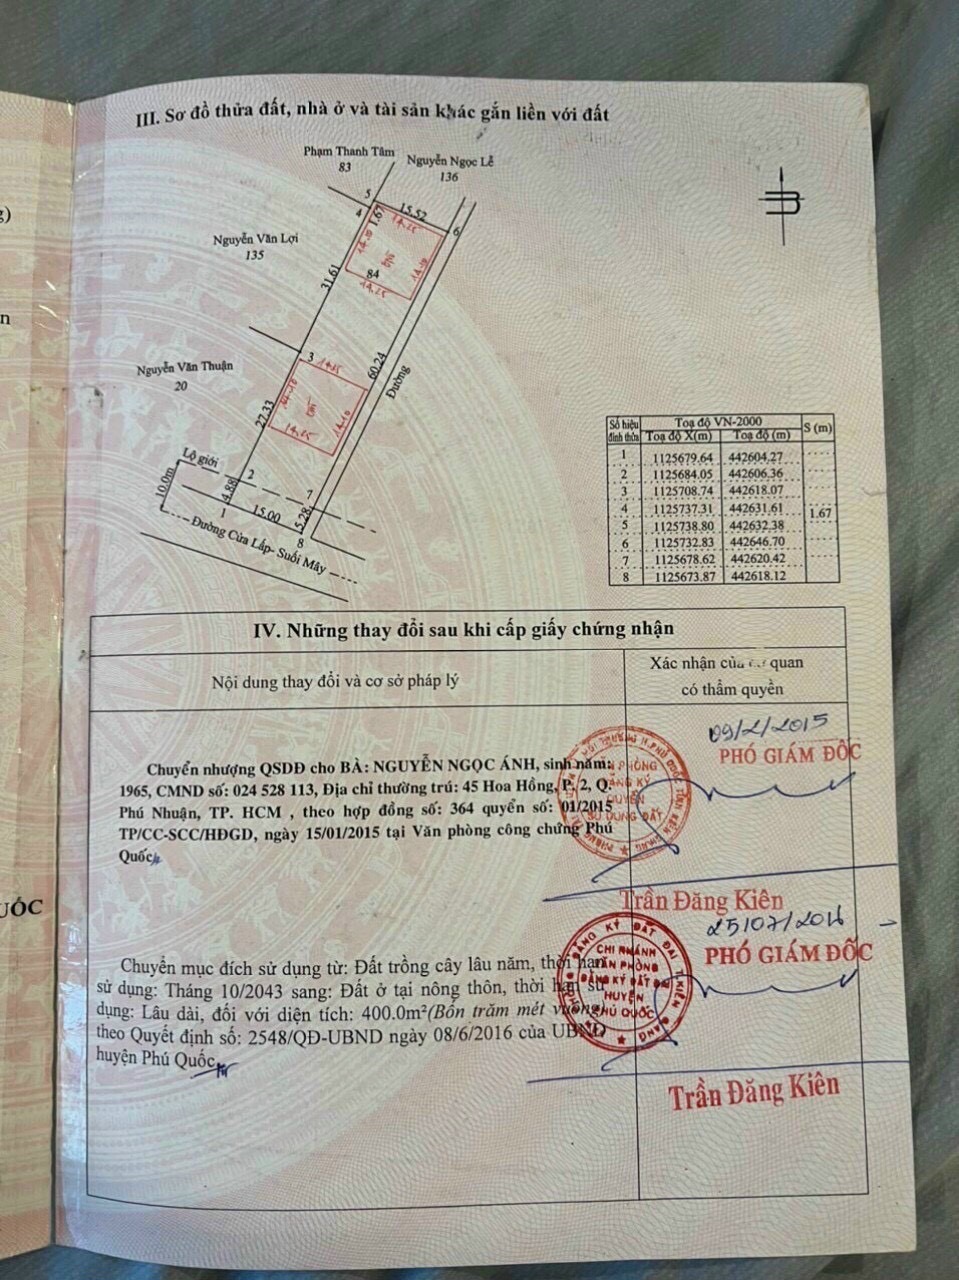 III. Sơ đồ thửa đất, nhà ở và tài sản khác gắn liền với đất
Phạm Thanh Tâm
83
Nguyễn Ngọc Lễ
136
5
4
1.67
15.52
14.25
6
14.10
14.10
84
14.25
Nguyễn Văn Lợi
135
31.61
60.24
Đường
3
14.25
Nguyễn Văn Thuận
20
14.10
14.10
27.33
14.25
Lộ giới
10.0m
2
4.88
7
1
15.00
5.28
8
Đường Cửa Lấp- Suối Mây
Số hiệu đỉnh thửa
Toạ độ VN-2000
S (m)
Toạ độ X(m) Toạ độ (m)
1 1125679.64 442604.27
2 1125684.05 442606.36
3 1125708.74 442618.07
4 1125737.31 442631.61
1.67
5 1125738.80 442632.38
6 1125732.83 442646.70
7 1125678.62 442620.42
8 1125673.87 442618.12
IV. Những thay đổi sau khi cấp giấy chứng nhận
Nội dung thay đổi và cơ sở pháp lý
Xác nhận của cơ quan
có thẩm quyền
Chuyển nhượng QSDĐ cho BÀ: NGUYỄN NGỌC ÁNH, sinh năm:
1965, CMND số: 024 528 113, Địa chỉ thường trú: 45 Hoa Hồng, P. 2, Q.
Phú Nhuận, TP. HCM , theo hợp đồng số: 364 quyển số: 01/2015
TP/CC-SCC/HĐGD, ngày 15/01/2015 tại Văn phòng công chứng Phú
Quốc
09/2/2015
PHÓ GIÁM ĐỐC
Trần Đăng Kiên
Chuyển mục đích sử dụng từ: Đất trồng cây lâu năm, thời hạn
sử dụng: Tháng 10/2043 sang: Đất ở tại nông thôn, thời hạn sử
dụng: Lâu dài, đối với diện tích: 400.0m² (Bốn trăm mét vuông)
theo Quyết định số: 2548/QĐ-UBND ngày 08/6/2016 của UBND
huyện Phú Quốc
25/07/2016
PHÓ GIÁM ĐỐC
CHI NHÁNH
VĂN PHÒNG
ĐĂNG KÝ ĐẤT ĐAI
HUYỆN
PHÚ QUỐC
Trần Đăng Kiên
UỐC